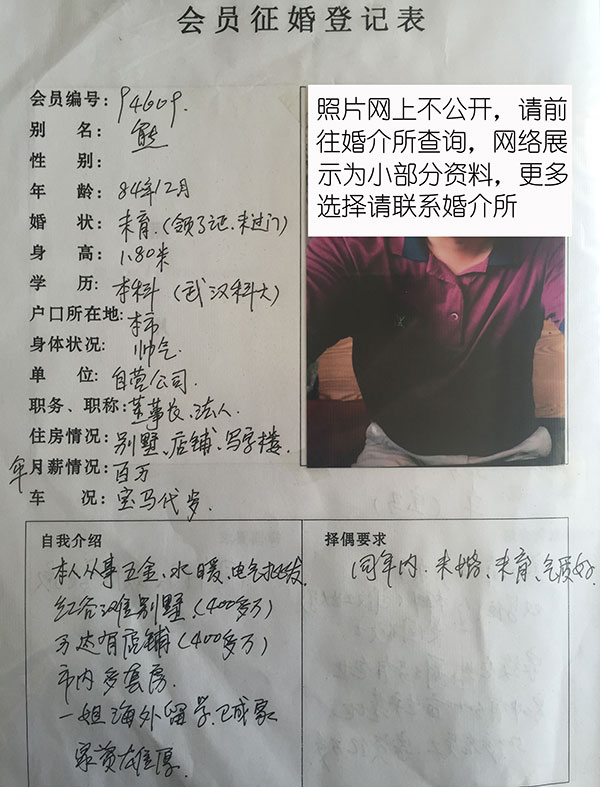 会员征婚登记表
会员编号: 94609.
别 名: 熊
性 别:
年 龄: 84年12月
婚 状: 未育.(领了证.未过门)
身 高: 1.80米
学 历: 本科 (武汉科大)
户口所在地: 本市
身体状况: 帅气.
单 位: 自营公司.
职务、职称: 董事长、法人.
住房情况: 别墅、店铺、写字楼.
年月薪情况: 百万
车 况: 宝马代步.
照片网上不公开，请前
往婚介所查询，网络展
示为小部分资料，更多
选择请联系婚介所
自我介绍
本人从事五金、水暖、电气批发.
红谷滩住别墅、(400多万)
万达有店铺 (400多万)
市内多套房.
一姐海外留学.已成家
家资雄厚.
择偶要求
同年内. 未婚、未育、气质好.